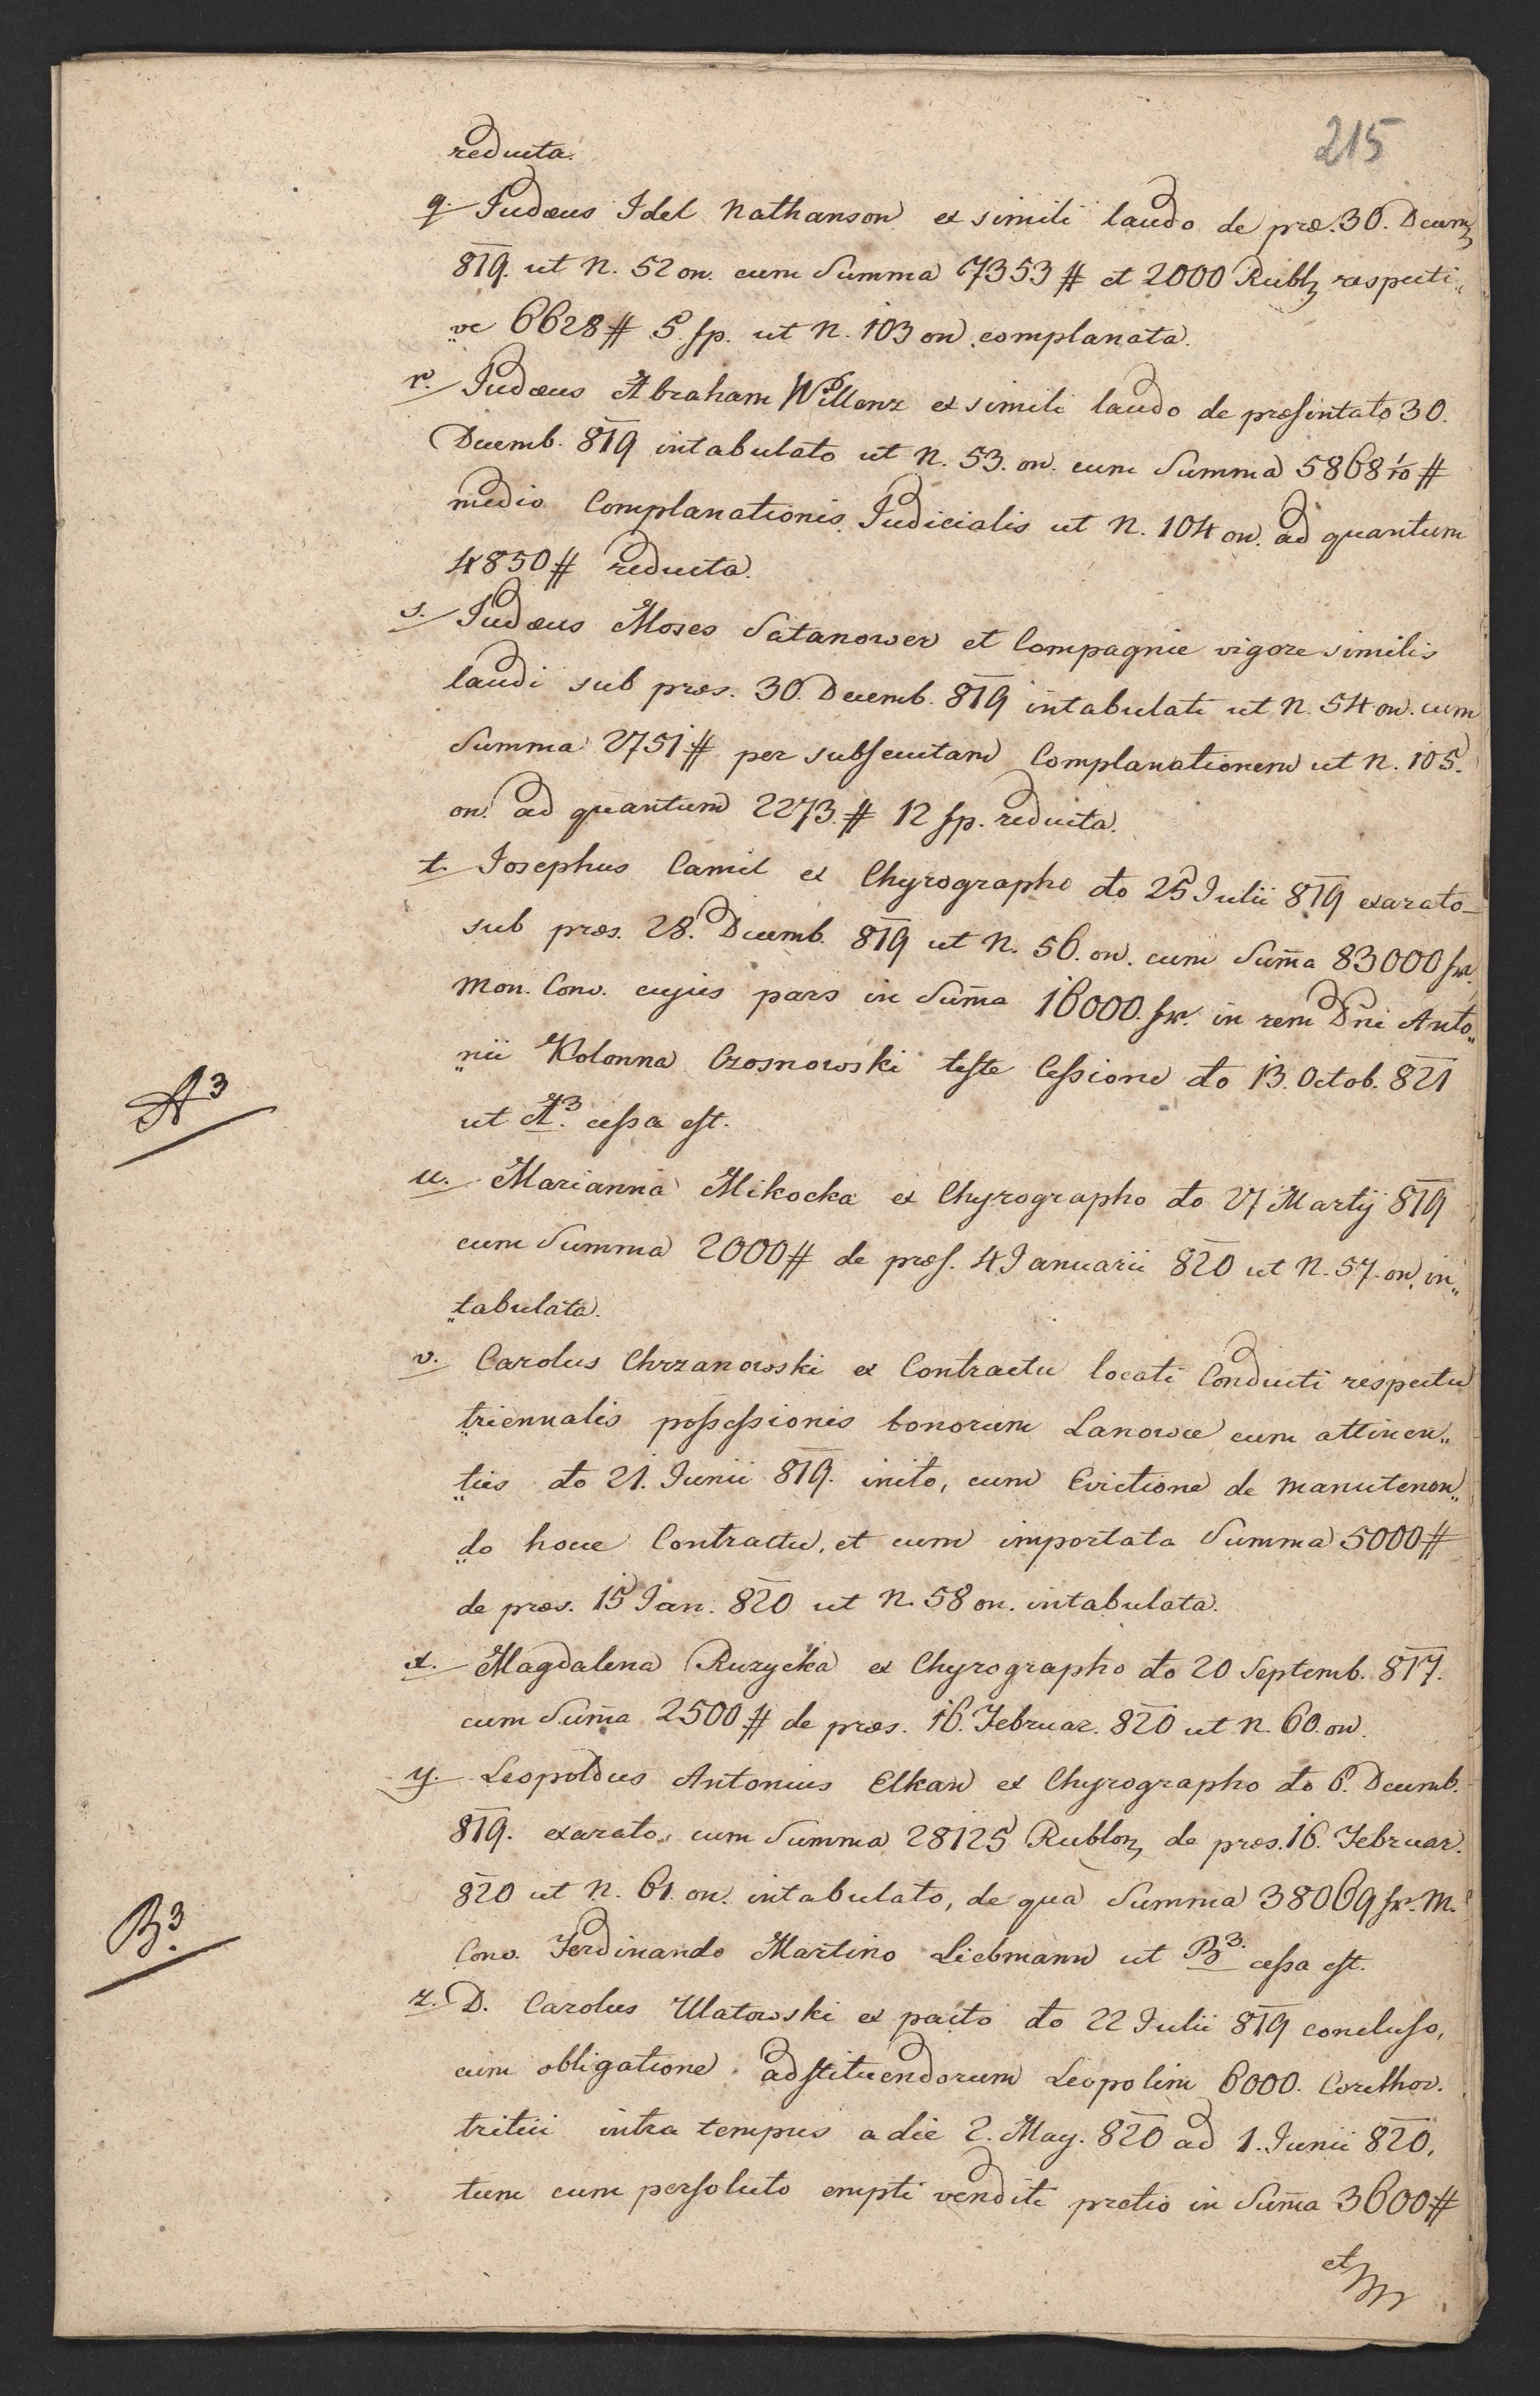 215
reducta.
q. Judæus Idel Nathanson ex simili laudo de præ. 30. Decemb
819. ut N. 52 on. cum Summa 7353 # et 2000 Rubl respecti„
„ve 6628 # 5 sp. ut N. 103 on. complanata.
r. Judæus Abraham Willenz ex simili laudo de præsentato 30.
Decemb. 819 intabulato ut N. 53. on. cum Summa 5868 1/10 #
medio Complanationis Judicialis ut N. 104 on. ad quantum
4850 # reducta.
s. Judæus Moses Satanower et Compagnie vigore similis
laudi sub præs. 30. Decemb. 819 intabulati ut N. 54 on. cum
Summa 2751 # per subsecutam Complanationem ut N. 105.
on. ad quantum 2273. # 12 sp. reducta.
t. Josephus Camil ex Chyrographo dto 25 Julii 819 exarato
sub præs. 28. Decemb. 819 ut N. 56. on. cum Sum̄a 83000 fr.
Mon. Conv. cujus pars in Sum̄a 16000. fr. in rem Dni Anto„
„nii Kolonna Czosnowski teste Cessione dto 13. Octob. 821
A3
ut A3. cessa est.
u. Marianna Mikocka ex Chyrographo dto 27 Martij 819
cum Summa 2000 # de præs. 4 Januarii 820 ut N. 57. on. in„
„tabulata.
v. Carolus Chrzanowski ex Contractu locati Conducti respectu
triennalis possessionis bonorum Lanowce cum attinen„
„tiis dto 21. Junii 819. inito, cum Evictione de manutenen„
„do hocce Contractu, et cum importata Summa 5000 #
de præs. 15 Jan. 820 ut N. 58 on. intabulata.
x. Magdalena Ruzycka ex Chyrographo dto 20 Septemb. 817.
cum Sum̄a 2500 # de præs. 16. Februar. 820 ut N. 60. on.
y. Leopoldus Antonius Elkan ex Chyrographo dto 6. Decemb.
819. exarato, cum Summa 28125 Rublon de præs. 16. Februar.
820 ut N. 61. on. intabulato, de qua Summa 38069 fr. M.
B3.
Conv. Ferdinando Martino Liebmann ut B3. cessa est.
z. D. Carolus Ulatowski ex pacto dto 22 Julii 819 concluso,
cum obligatione adstituendorum Leopolim 6000. Corethor.
tritici intra tempus a die 2. May. 820 ad 1. Junii 820,
tum cum persoluto empti venditi pretio in Sum̄a 3600 #
et